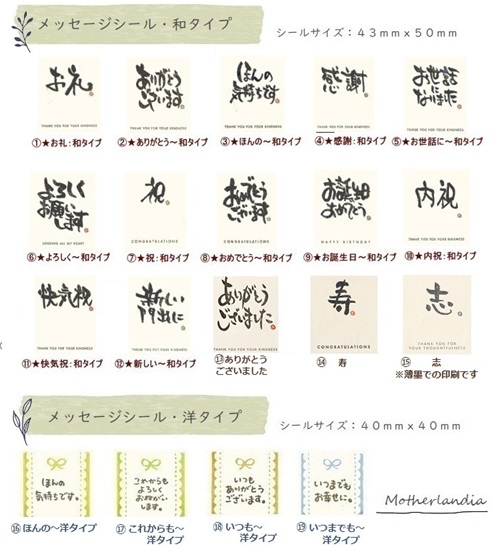 メッセージシール・和タイプ
シールサイズ：４３ｍｍｘ５０ｍｍ
お礼
THANK YOU FOR YOUR KINDNESS
①★お礼:和タイプ
ありがとう
ございます
THANK YOU FOR YOUR KINDNESS
②★ありがとう〜和タイプ
ほんの
気持ちです
THANK YOU FOR YOUR KINDNESS
③★ほんの〜和タイプ
感謝
THANK YOU FOR YOUR KINDNESS
④★感謝:和タイプ
お世話
になりました
THANK YOU FOR YOUR KINDNESS
⑤★お世話に〜和タイプ
よろしく
お願い
します
SENDING ALL MY HEART
⑥★よろしく〜和タイプ
祝
CONGRATULATIONS
⑦★祝:和タイプ
おめでとう
ございます
CONGRATULATIONS
⑧★おめでとう〜和タイプ
お誕生日
おめでとう
HAPPY BIRTHDAY
⑨★お誕生日〜和タイプ
内祝
THANK YOU FOR YOUR KINDNESS
⑩★内祝:和タイプ
快気祝
THANK YOU FOR YOUR KINDNESS
⑪★快気祝:和タイプ
新しい
門出に
THANK YOU FOR YOUR KINDNESS
⑫★新しい〜和タイプ
ありがとう
ございました
⑬ありがとう
ございました
寿
CONGRATULATIONS
⑭ 寿
志
THANK YOU FOR
YOUR THOUGHTFULNESS
⑮ 志
※薄墨での印刷です
メッセージシール・洋タイプ
シールサイズ：４０ｍｍｘ４０ｍｍ
ほんの
気持ちです。
⑯ほんの〜
洋タイプ
これからも
よろしく
お願いが
します。
⑰これからも〜
洋タイプ
いつも
ありがとう
ございます。
⑱いつも〜
洋タイプ
いつまでも
お幸せに。
⑲いつまでも〜
洋タイプ
Motherlandia